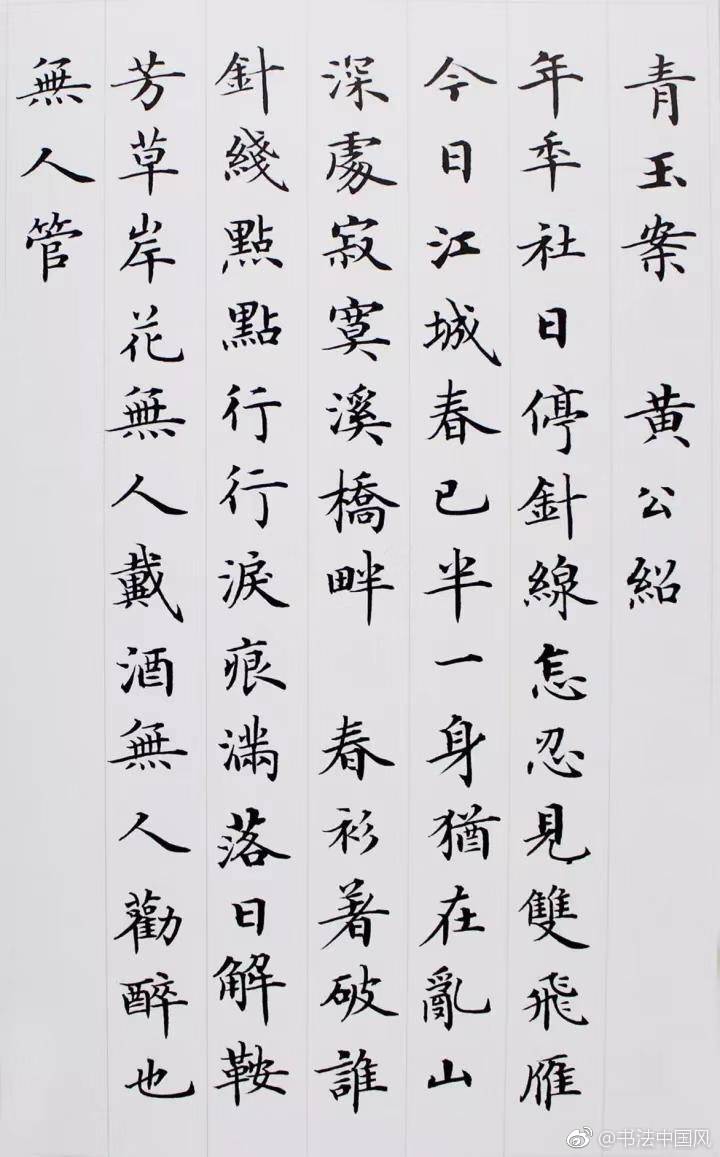 青玉案 黄公紹
年年社日停針線怎忍見雙飛雁
今日江城春已半一身猶在亂山
深處寂寞溪橋畔 春衫著破誰
針綫點點行行淚痕滿落日解鞍
芳草岸花無人戴酒無人勸醉也
無人管
@书法中国风